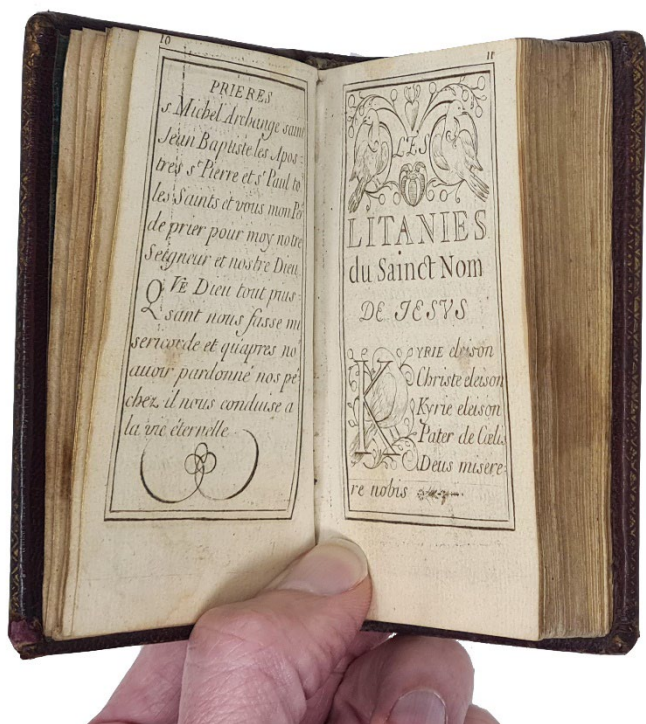 10
PRIERES
s. Michel Archange saint
Jean Baptiste les Apos-
tres st Pierre et st Paul to
les Saints et vous mon Pe
de prier pour moy notre
Seigneur et nostre Dieu
QVE Dieu tout puis-
sant nous fasse mi
sericorde et quapres no
auoir pardonné nos pé
chez, il nous conduise a
la vie éternelle
11
LES
LITANIES
du Sainct Nom
DE JESVS
KYRIE eleison
Christe eleison
Kyrie eleison
Pater de Cœlis
Deus misere-
re nobis